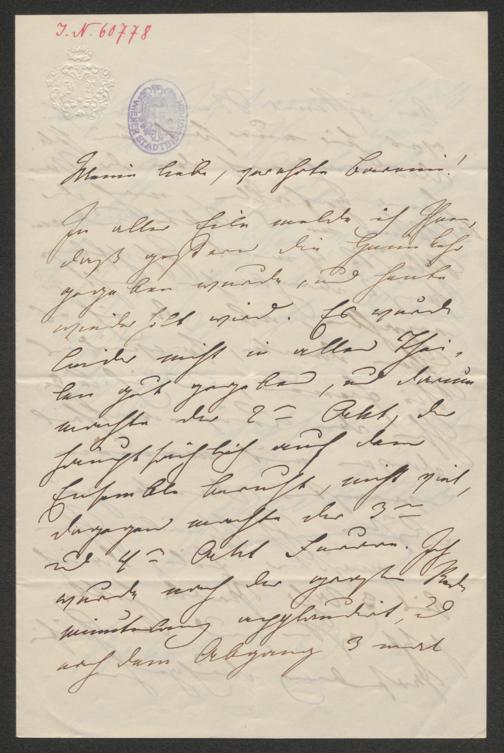 I. N. 60778
WIENER STADTBIBLIOTHEK
Meine liebe, verehrte Baronin!
In aller Eile melde ich Ihnen,
daß gestern die
gegeben wurde, und heute
wiederholt wird. Es wurde
leider nicht in allen Thei-
len gut gegeben, und darum
machte der 2te Akt, der
hauptsächlich auf dem
Ensemble beruht, nicht viel,
dagegen machte der 3te
und 4te Akt Furore. Ich
wurde nach der großen Rede
minutenlang applaudirt, und
nach dem Abgang 3 mal